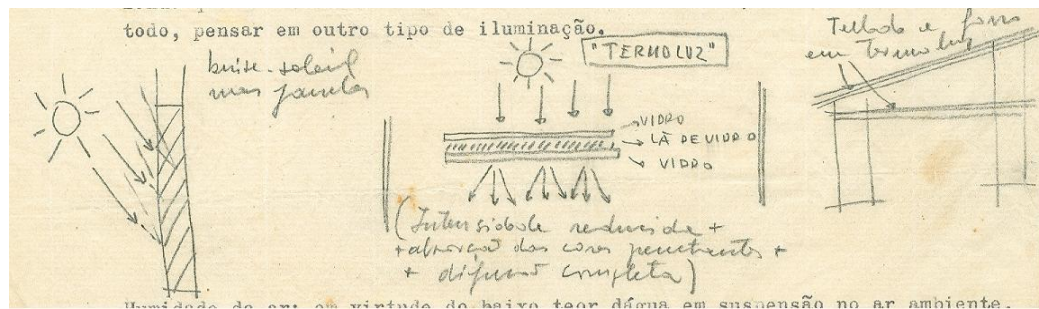 todo, pensar em outro tipo de iluminação.
brise-soleil
nas janelas
"TERMOLUZ"
VIDRO
LÃ DE VIDRO
VIDRO
(Intensidade reduzida +
+ absorção das cores penetrantes +
+ difusão completa)
Telhado e forro
em Termoluz
Humidade do ar: em virtude do baixo teor dágua em suspensão no ar ambiente,